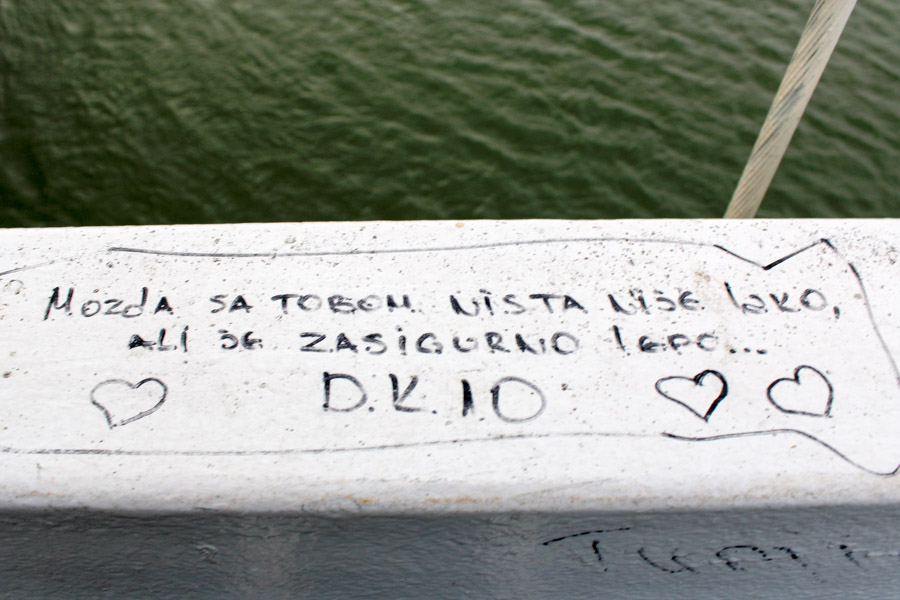 MOZDA SA TOBOM NISTA NIJE lAKO,
ALI JE ZASIGURNO lEPO...
D.K. 10